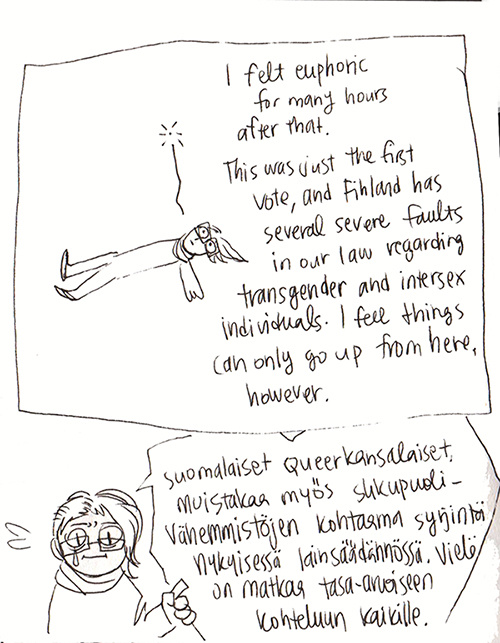 I felt euphoric
for many hours
after that.
This was just the first
vote, and Finland has
several severe faults
in our law regarding
transgender and intersex
individuals. I feel things
can only go up from here,
however.
suomalaiset queerkansalaiset,
muistakaa myös sukupuoli-
vähemmistöjen kohtaama syrjintä
nykyisessä lainsäädännössä. Vielä
on matkaa tasa-arvoiseen
kohteluun kaikille.